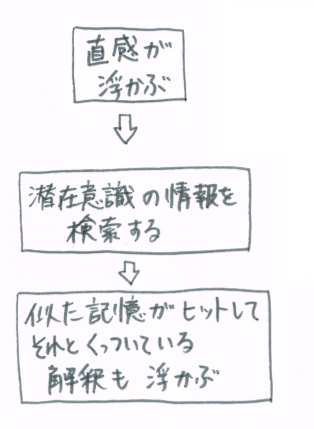 直感が
浮かぶ
潜在意識の情報を
検索する
似た記憶がヒットして
それとくっついている
解釈も浮かぶ